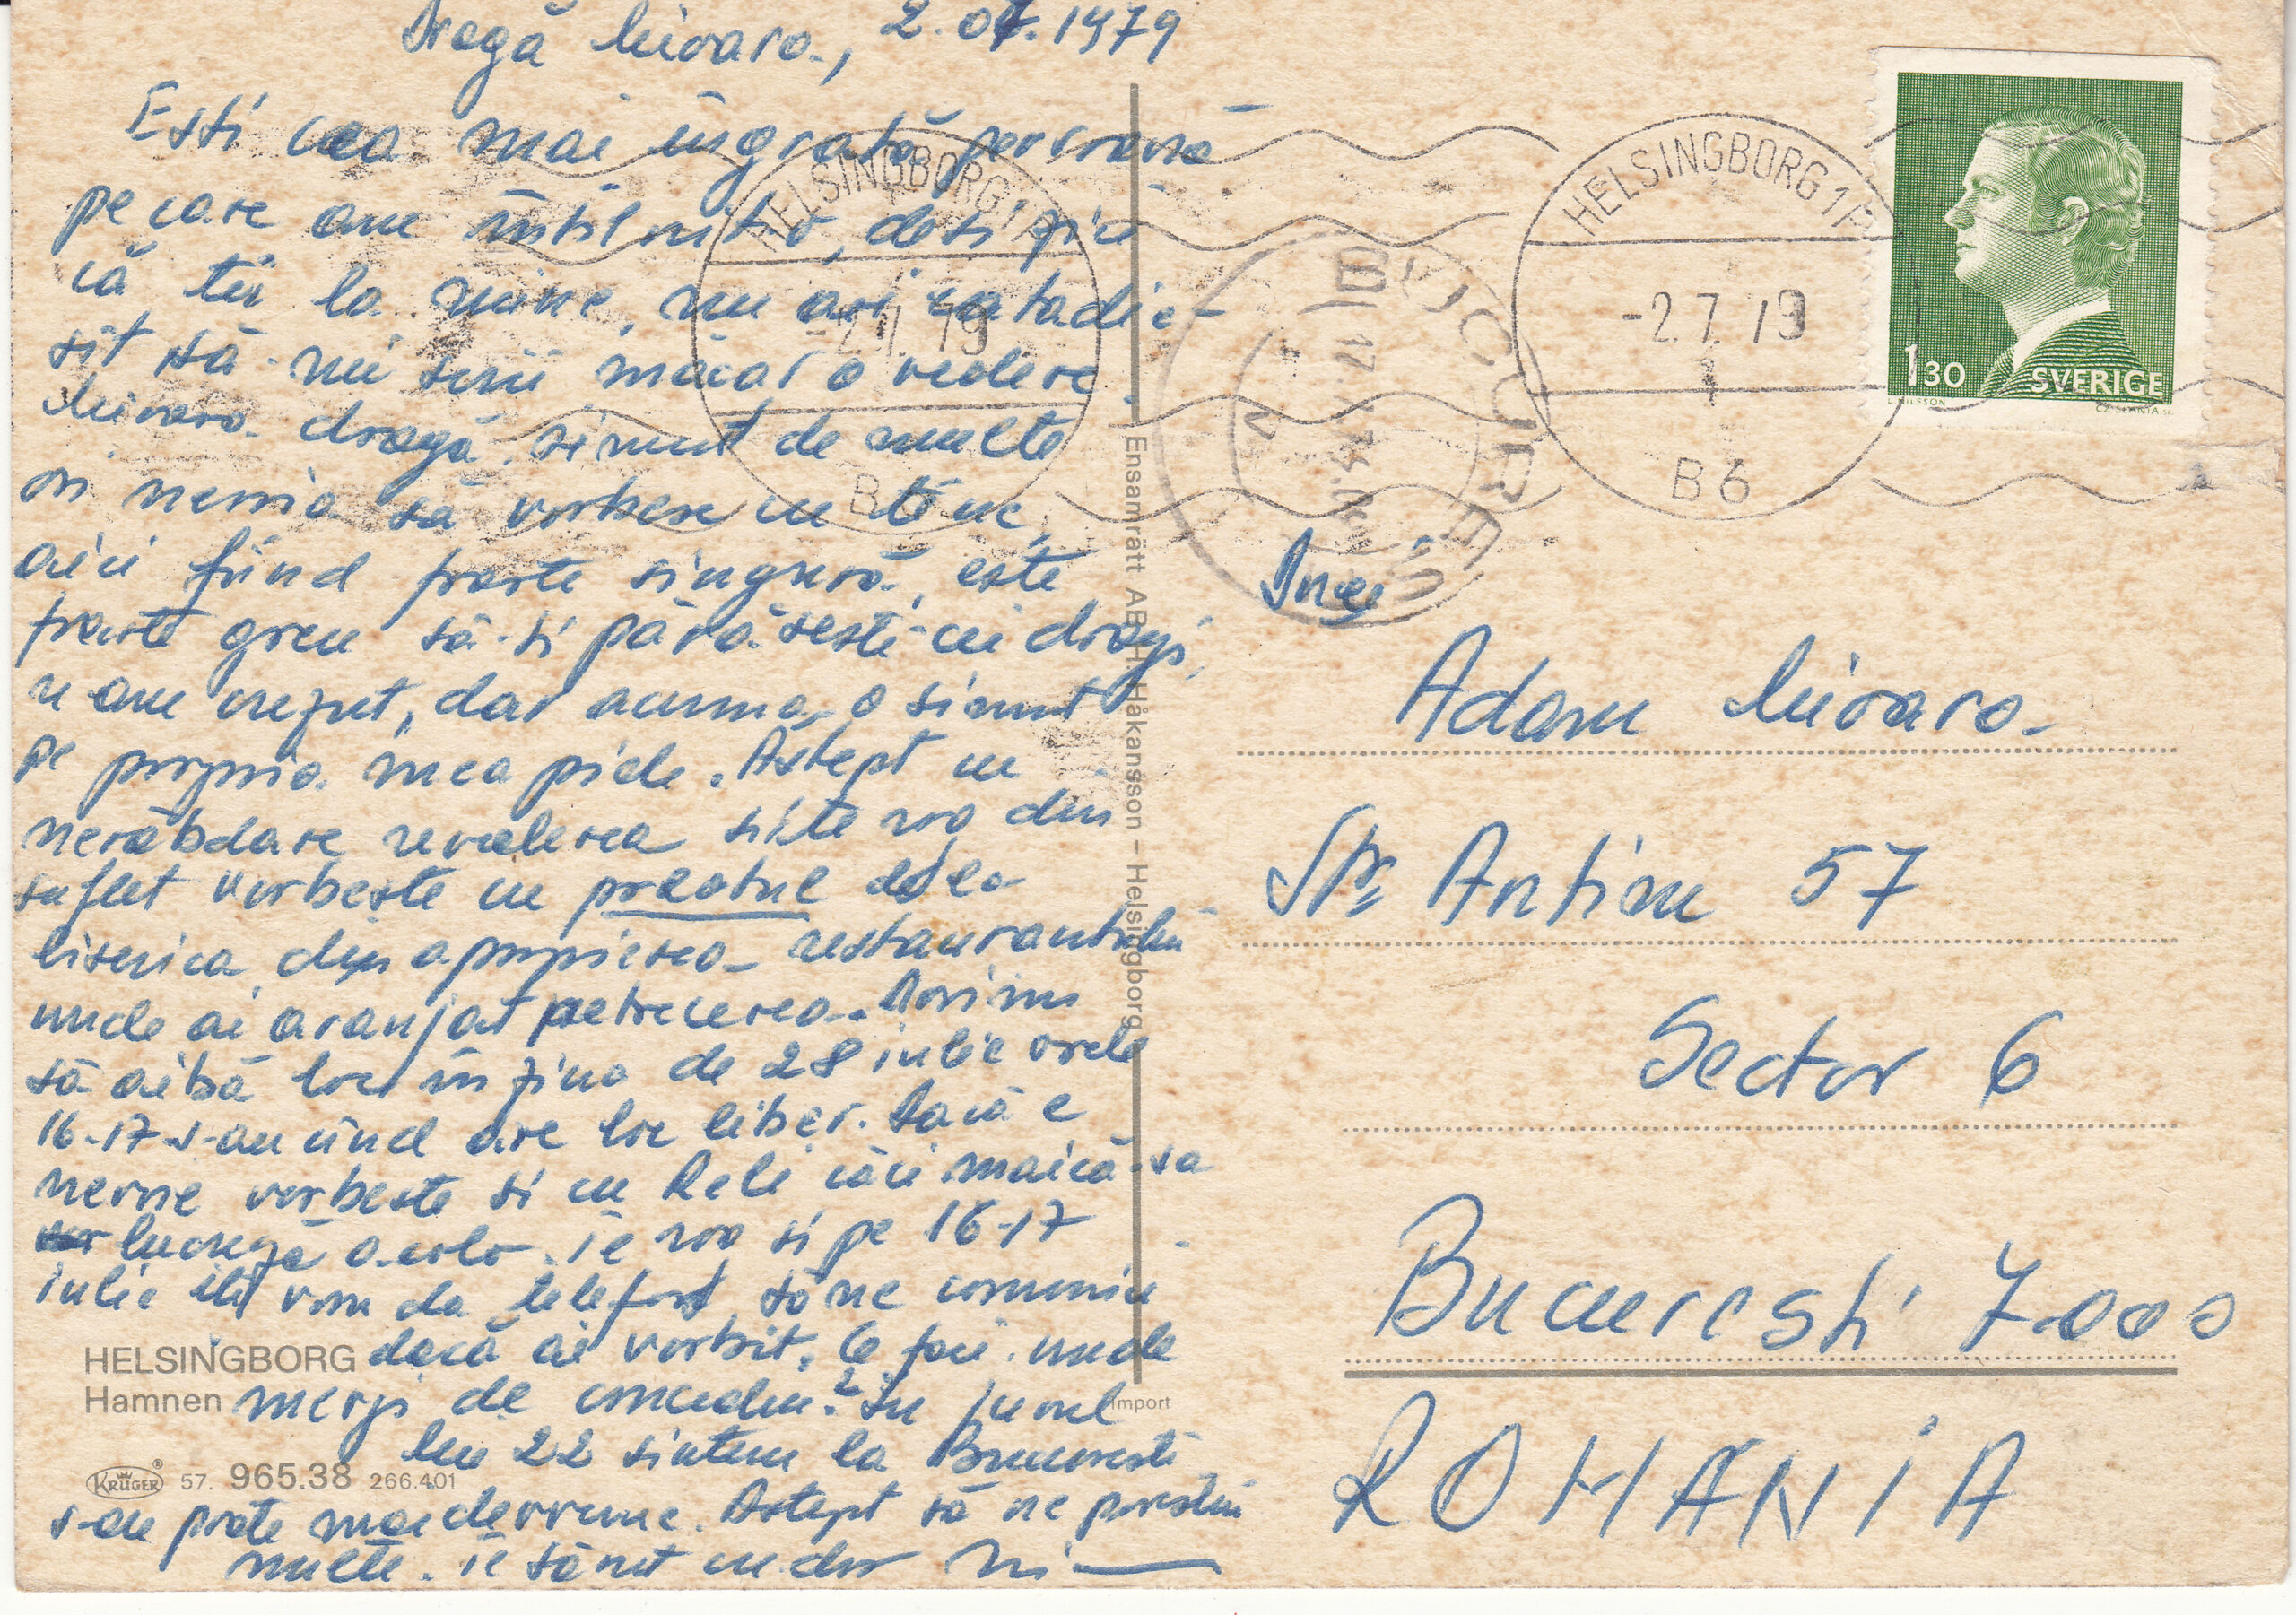 Dragă Mioara, 2.07.1979
Esti cea mai îngrată persoană
pe care am întîlnit-o, desi zici
că tii la mine, nu ai catadic-
sit să-mi scrii măcar o vedere.
Mioara dragă, simt de multe
ori nevoia să vorbesc cu tine,
aici fiind foarte singură, este
foarte greu să-ti părăsesti cei dragi,
n-am crezut, dar acuma o simt
pe propria mea piele. Astept cu
nerăbdare revederea si te rog din
suflet vorbeste cu preotul de la
biserica din apropierea restaurantului
unde ai aranjat petrecerea. Dorim
să aibă loc în ziua de 28 iulie orele
16-17 s-au cînd are loc liber. Dacă e
nevoie vorbeste si cu Reli căci maică-sa
lucrează acolo. Te rog si pe 16-17
iulie îti vom da telefon, să ne comunici
dacă ai vorbit. Ce faci, unde
mergi de concediu? In jurul
lui 22 sintem la Bucuresti
s-au poate mai devreme. Astept să ne povestim
multe. Te sărut cu dor
HELSINGBORG
Hamnen
KRÜGER® 57. 965.38 266.401
Ensamrätt AB H. Håkansson – Helsingborg
Import
HELSINGBORG 1
-2.7.79
B
BUCURESTI
HELSINGBORG 1F
-2.7.79
B6
1 30 SVERIGE
L. NILSSON
CZ. SLANIA SC
Adam Mioara
Str. Antim 57
Sector 6
Bucuresti 7000
ROMANIA